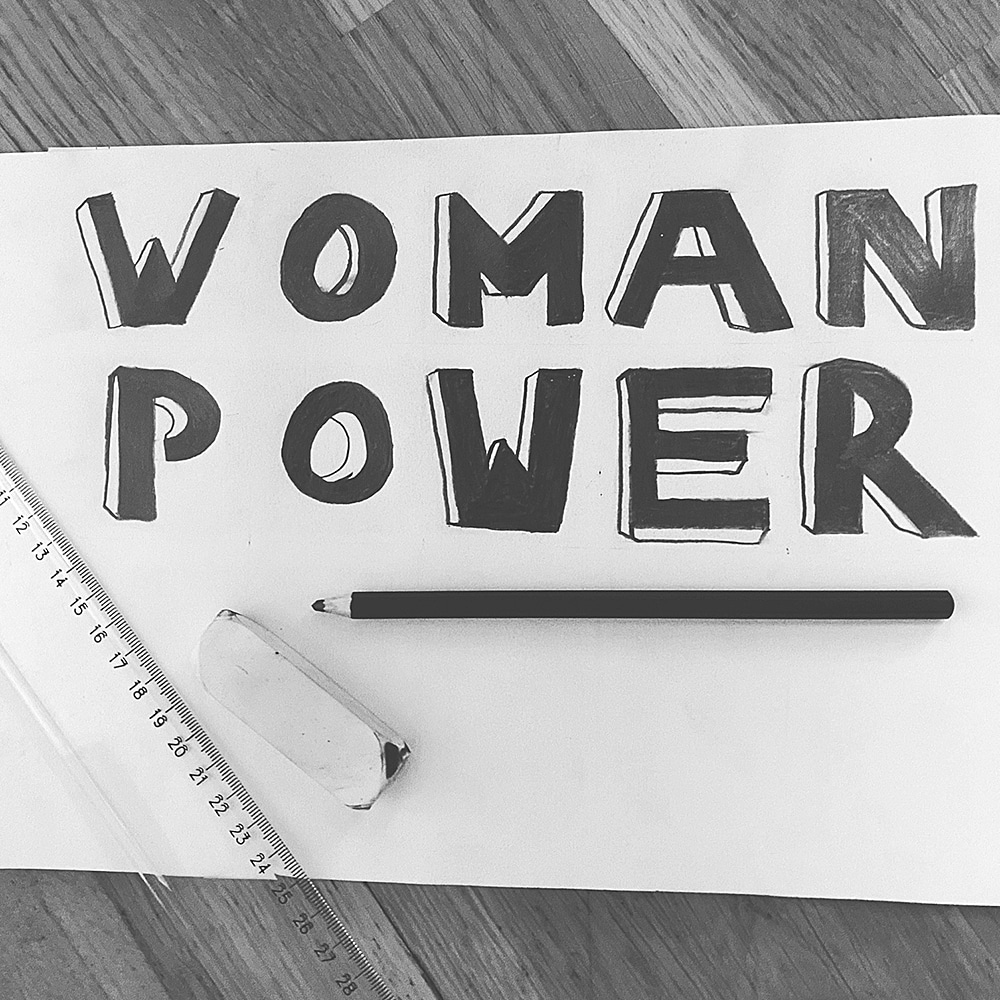 WOMAN
POWER
11
12
13
14
15
16
17
18
19
20
21
22
23
24
25
26
27
28